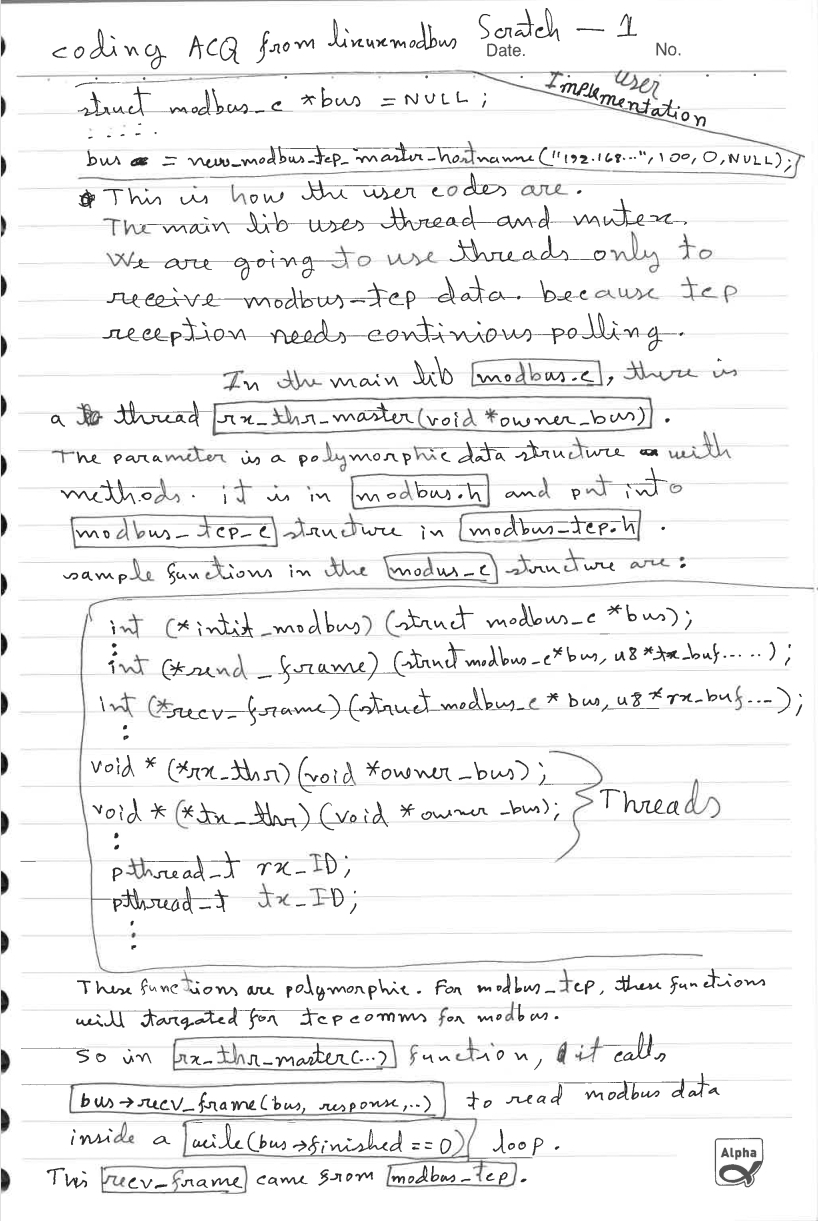 coding ACQ from linuxmodbus Scratch - 1
Date. No.
user
Implementation
struct modbus_c *bus = NULL;
.....
bus = new_modbus_tcp_master_hostname("192.168...",100,0,NULL);
This is how the user codes are.
The main lib uses thread and mutex.
We are going to use threads only to
receive modbus-tcp data. because tcp
reception needs continious polling.
In the main lib modbus.c, there is
a thread rx_thr_master(void *owner_bus).
The parameter is a polymorphic data structure with
methods. it is in modbus.h and put into
modbus_tcp_c structure in modbus_tcp.h.
sample functions in the modus_c structure are:
int (*intit_modbus) (struct modbus_c *bus);
:
int (*send_frame) (struct modbus_c*bus, u8 *tx_buf.....);
int (*recv_frame)(struct modbus_c * bus, u8 *rx_buf...);
:
void * (*rx_thr)(void *owener_bus);
void * (*tx_thr)(void * owener_bus); } Threads
:
pthread_t rx_ID;
pthread_t tx_ID;
:
These functions are polymorphic. For modbus_tcp, these functions
will targated for tcp comms for modbus.
So in rx_thr_master(...) function, it calls
bus→recv_frame(bus, response,..) to read modbus data
inside a wile(bus→finished == 0) loop.
This recv_frame came from modbus_tcp.
Alpha